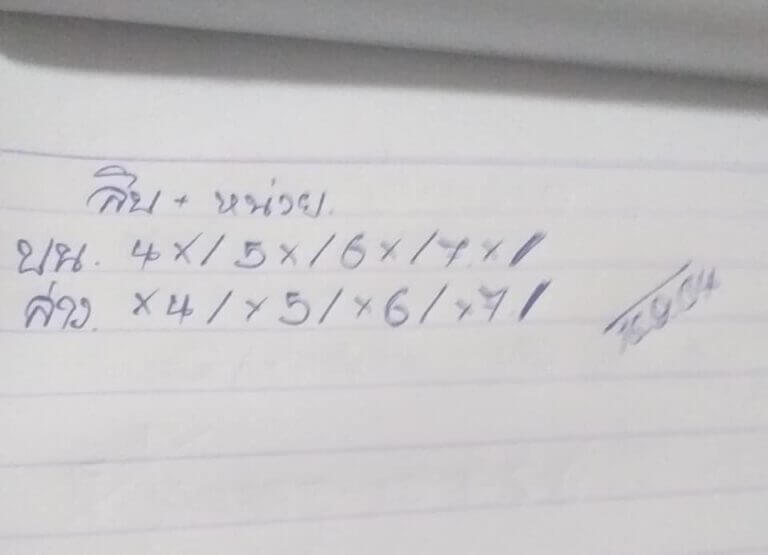 สิบ + หน่วย.
บน. 4x/5x/6x/7x/
ล่าง. x4/x5/x6/x7/